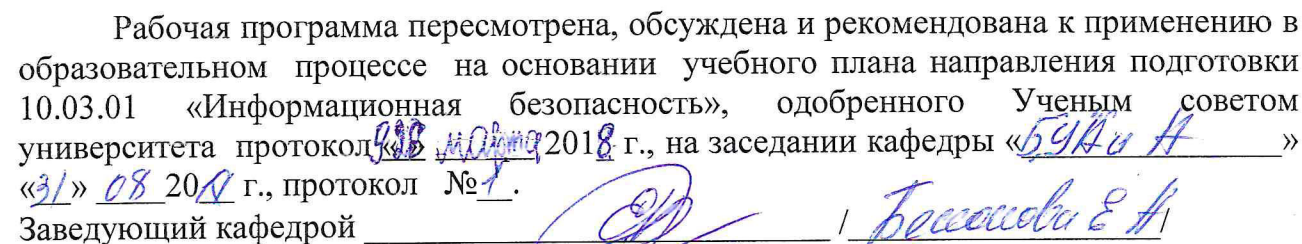 Рабочая программа пересмотрена, обсуждена и рекомендована к применению в
образовательном процессе на основании учебного плана направления подготовки
10.03.01 «Информационная безопасность», одобренного Ученым советом
университета протокол марта 2018 г., на заседании кафедры «БУА и А»
«31» 08 20 г., протокол № 1.
Заведующий кафедрой / Бессонова Е А/